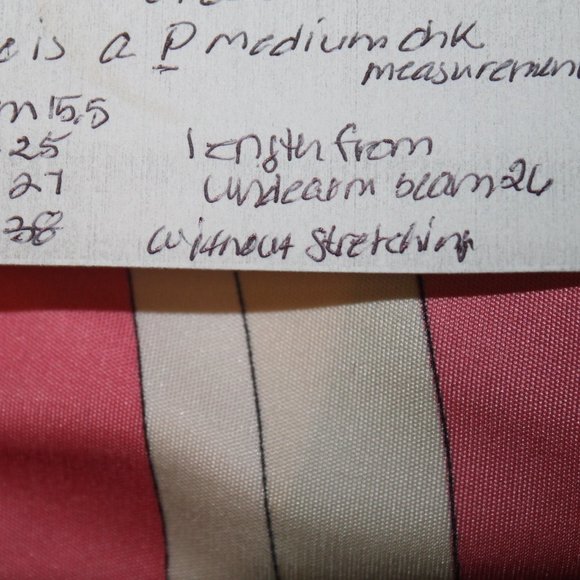 is a P medium chk
measuremen
m 15.5 length from
25 underarm beam 26
27 without stretching
38